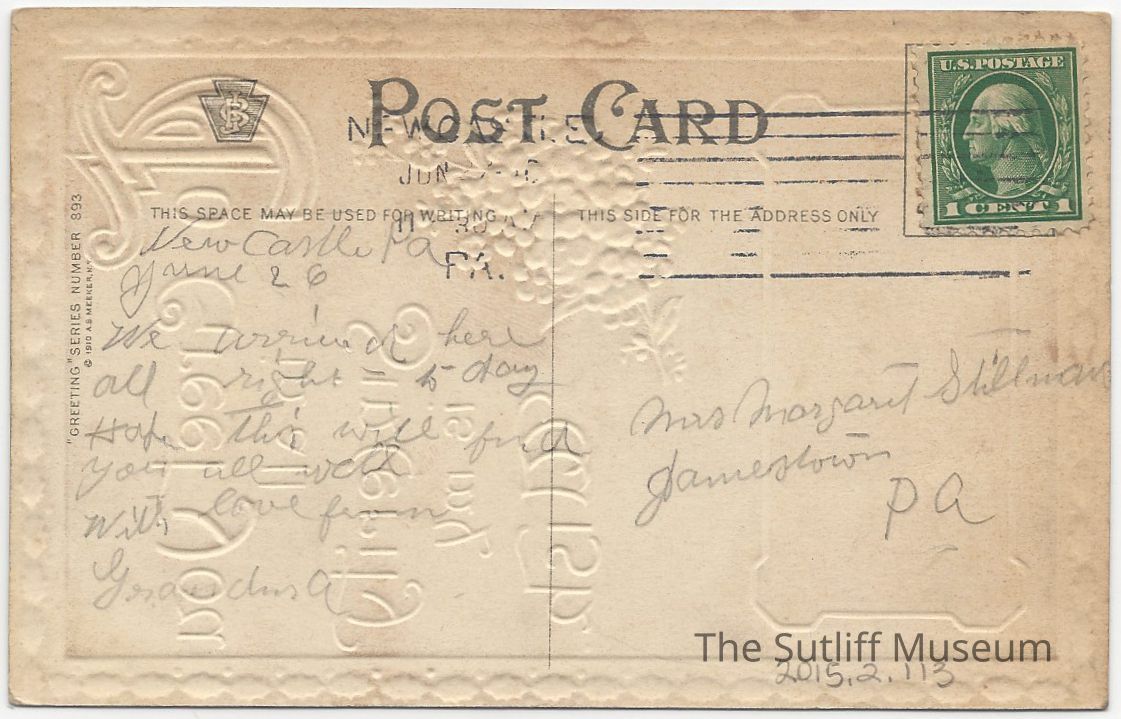 POST CARD
NEW CASTLE,
JUN
PA.
U.S. POSTAGE
1 CENT 1
THIS SPACE MAY BE USED FOR WRITING
THIS SIDE FOR THE ADDRESS ONLY
"GREETING" SERIES NUMBER 893
© 1910 A.S. MEEKER, N.Y.
New Castle Pa
June 26
We arrived here
all right to-day
Hope this will find
you all well
With love from
Mrs Margaret Stillman
Jamestown
PA
The Sutliff Museum
2015.2.113